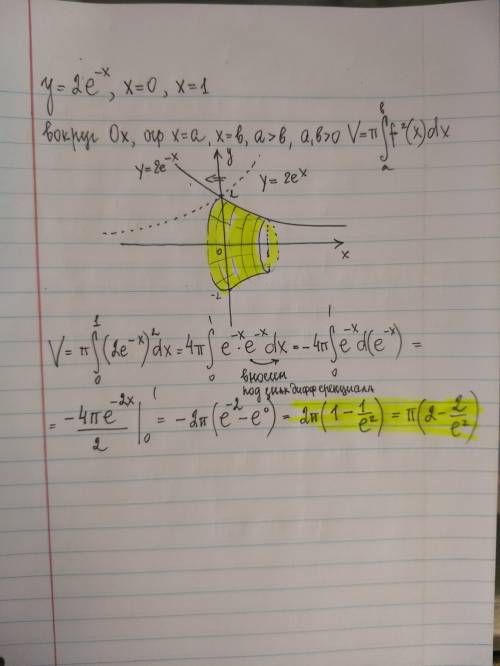 y = 2e^{-x}, x=0, x=1
вокруг Ox, огр x=a, x=b, a>b, a,b>0 V=π∫_a^b f²(x)dx
y=2e^{-x} y y=2e^x
2
0 x
-2
V = π∫_0^1 (2e^{-x})² dx = 4π∫_0^1 e^{-x}·e^{-x} dx = -4π∫_0^1 e^{-x} d(e^{-x}) =
вносим
под знак дифференциала
= -4πe^{-2x}/2 |_0^1 = -2π(e^{-2} - e^0) = 2π(1 - 1/e²) = π(2 - 2/e²)